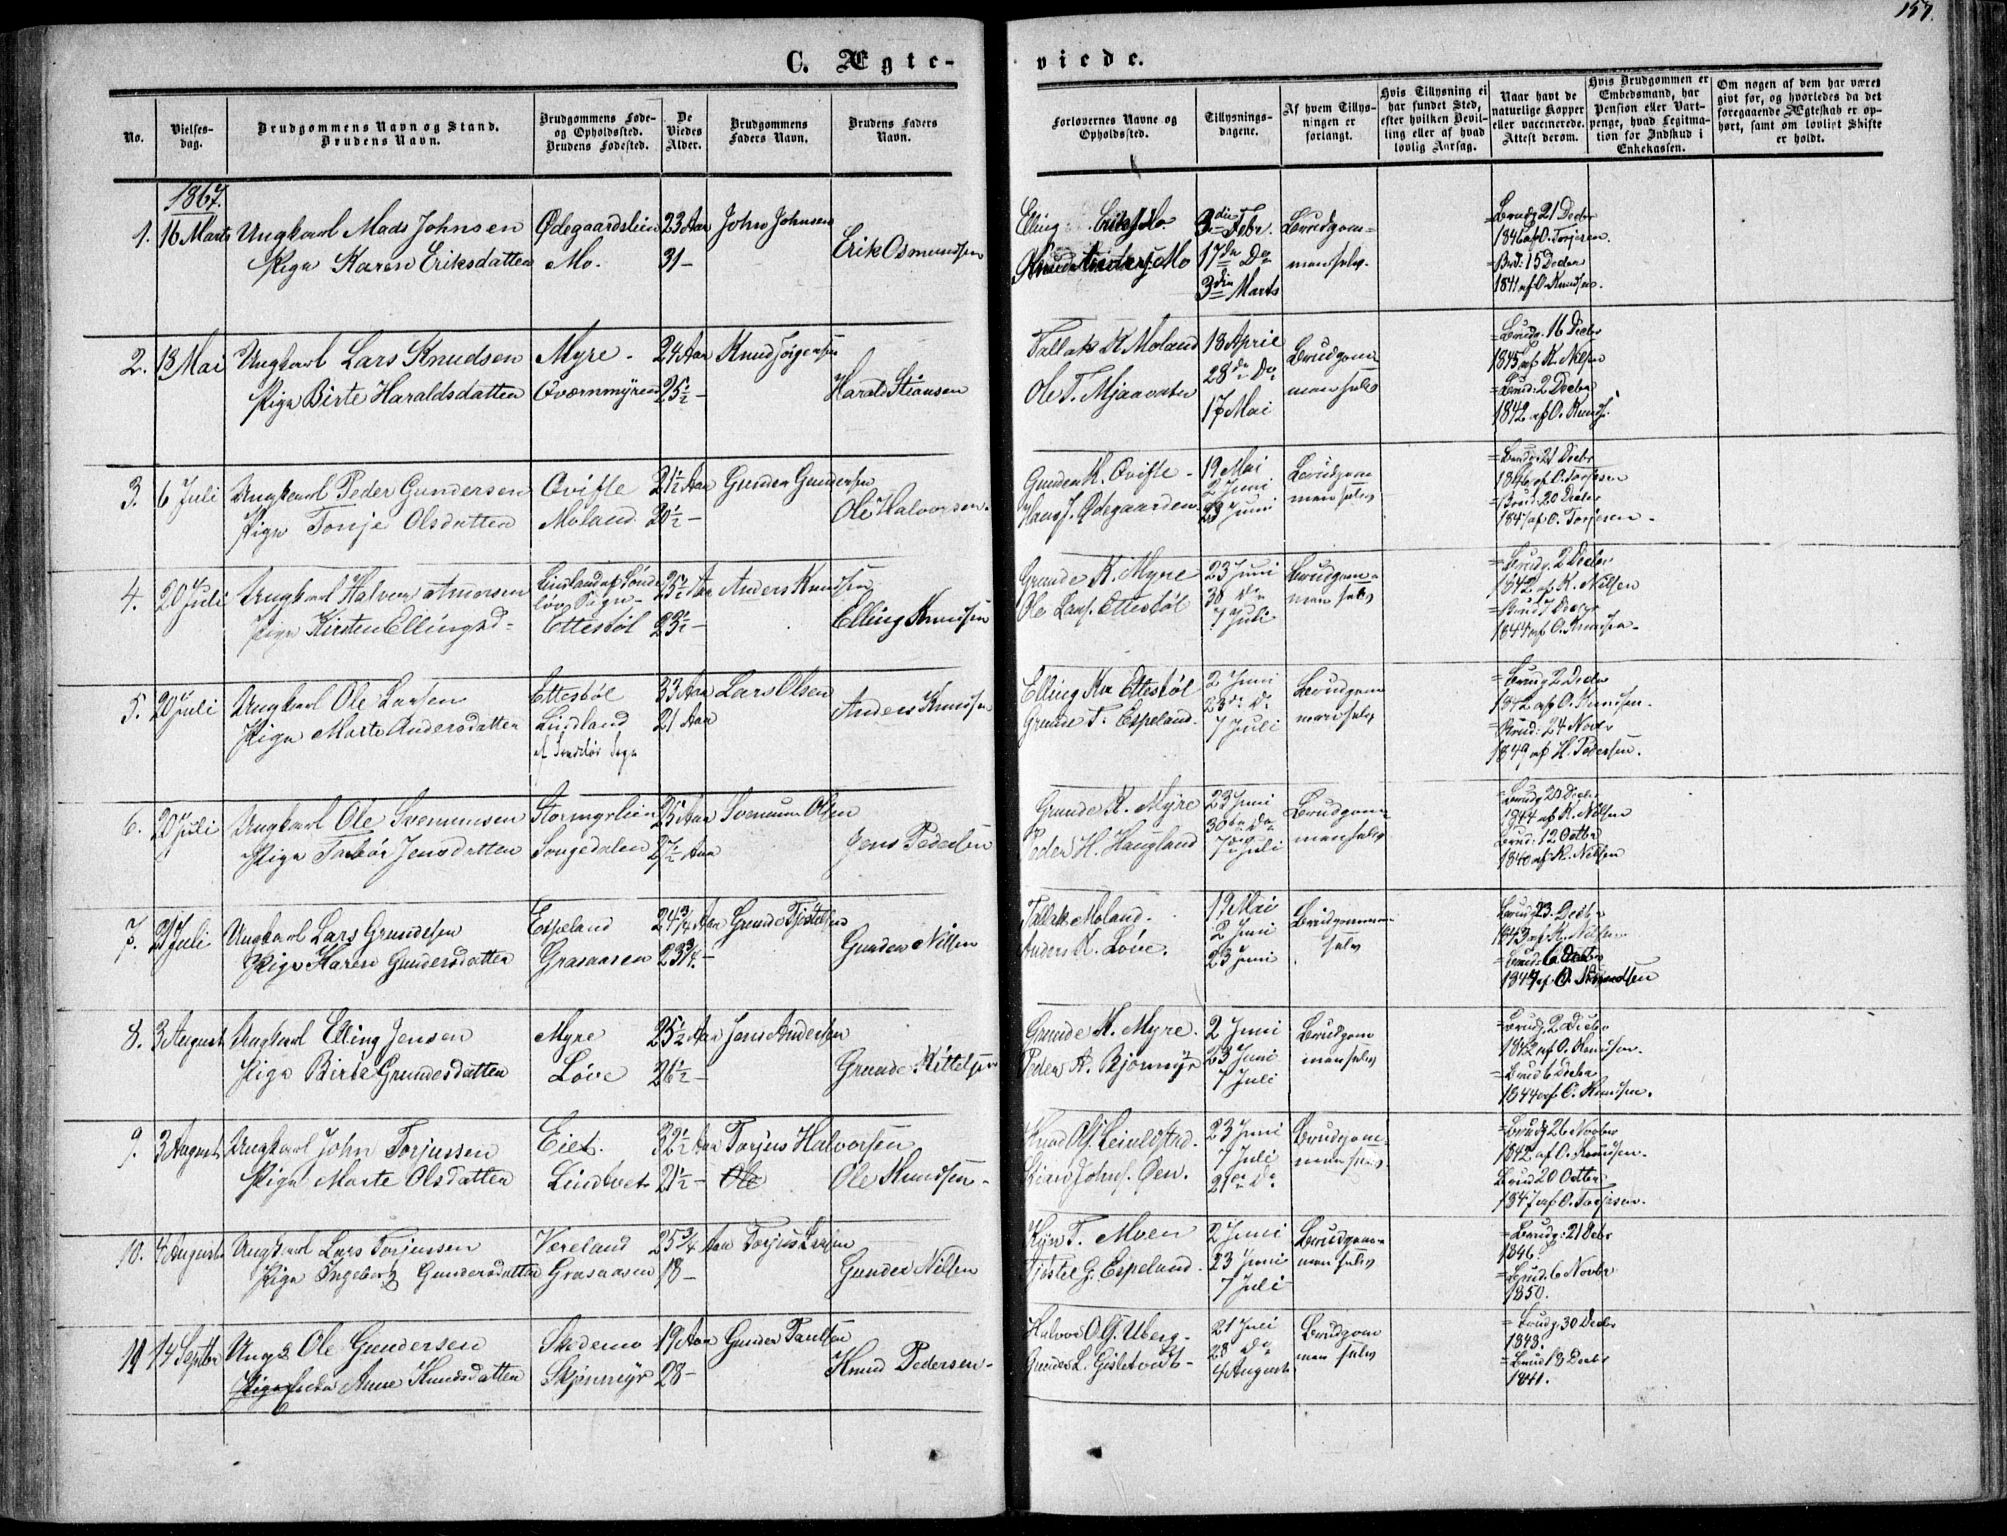 157.
C. Ægte-
viede.
No.
Vielses-
dag.
Brudgommens Navn og Stand.
Brudens Navn.
Brudgommens Føde-
og Opholdssted.
Brudens Fødested.
De
Viedes
Alder.
Brudgommens
Faders Navn.
Brudens Faders
Navn.
Forlovernes Navne og
Opholdssted.
Tillysnings-
dagene.
Af hvem Tillys-
ningen er
forlangt.
Hvis Tillysning ei
har fundet Sted,
efter hvilken Bevil-
ling eller af hvad
lovlig Aarsag.
Naar havt de
naturlige Kopper
eller vaccinerede.
Attest derom.
Hvis Brudgommen er
Embedsmand, har
Pension eller Vart-
penge, hvad Legitima-
tion for Indskud i
Enkekassen.
Om nogen af dem har været
givt før, og hvorledes da det
foregaaende Ægteskab er op-
hørt, samt om lovligt Skifte
er holdt.
1867.
1. 16 Marts Ungkarl Mads Johnsen Ødegaardslien 23 Aar John Johnsen
Pige Karen Eriksdatter Mo. 31 – Erik Osmundsen
Elling Mo. 3die Febr. Brudgom-
Mo 17de Do man selv.
3die Marts
Brudg 21 Decbr
1846 af O. Torjesen.
Brd: 15 Decbr
1841 af O. Knudsen.
2. 18 Mai Ungkarl Lars Knudsen Myre – 24 Aar Knud Jörgensen
Pige Birte Haraldsdatter Qværnmyren 25½ – Harald Stiansen
Tallak K Moland 18 April Brudgom-
Ole T. Mjaavatn 28de Do man selv
17 Mai
Brudg. 16 Decbr
1845 af K. Nilsen
Brud: 2 Decbr
1842 af O. Knuds.
3. 6 Juli Ungkarl Peder Gundersen Qvifte 21½ Aar Gunder Gundersen
Pige Tonje Olsdatter Moland 20½ – Ole Halvorsen.
Gunder K. Qvifte – 19 Mai Brudgom-
Hans J. Ødegaarden 2 Juni man selv
23 Juni
Brudg: 21 Decbr
1846 af O. Torjesen
Brud: 20 Octbr
1847 af O. Torjesen.
4. 20 Juli Ungkarl Halvor 25½ Aar Anders Knudsen
Pige Kirsten Ellingsd– Ettestøl 23½ – Elling Knudsen
Grunde K. Myre 23 Juni Brudgom-
Ole Lars. Ettestøl 30 Do man selv
7 Juli
Brudg. 2 Decbr
1842 af K. Nilsen
1844 af O. Knudsen.
5. 20 Juli Ungkarl Ole Larsen Ettestøl 33 Aar Lars Olsen
Pige Marte Andersdatter Lindland 21 Aar Anders Knudsen
Elling Kn Ettestøl 2 Juni Brudgom
Grunde T. Espeland. 23de Do man selv
7 Juli
Brudg 2 Decbr
af O. Knudsen.
Brud: 24 Novbr
1849 af H. Pedersen.
6. 20 Juli Ungkarl Ole Svenumsen Stormyrlien 25 Aar Svenum Olsen
Pige Tarbør Jensdatter Songedalen 27½ Aar Jens Pedersen
Grunde K. Myre 23 Juni Brudgom-
Peder H. Haugland 30te Do man selv
7 Juli
1844 af K. Nilsen
Brud: 12 Octbr
1840 af K. Nilsen
7. 21 Juli Ungkarl Lars Grundesen Espeland 24¾ Aar Grunde Tjostelsen
Pige Karen Gundersdatter Grasaasen 23¾ – Gunder Nilsen
Tallak Moland. 19 Mai Brudgommen
Anders K. Löve. 2 Juni selv
23 Juni
Brudg 23. Decbr
1843 af K. Nilsen
8. 3 August Ungkarl Elling Jensen Myre 25½ Aar Jens Andersen
Pige Birte Grundesdatter Løve 26½ – Grunde Kittelsen
Grunde K. Myre. 2 Juni Brudgom
Peder A. Bjønmyr 23 Juni man selv
7 Juli
Brudg. 2 Decbr
1842 af O. Knudsen.
Brud 6 Decbr
1844 af O. Knudsen.
9. 3 August Ungkarl John Torjussen Eiet. 32½ Aar Torjus Halvorsen
Pige Marte Olsdatter Lindtvet 21½ – Ole Ole Knudsen –
23 Juni Brudgom-
Johns. Øen. 7 Juli man selv
21de Do
Brudg 26 Novbr
1842 af O. Knudsen.
Brud 20 Octbr
1847 af O. Torjesen.
10. 4 August Ungkarl Lars Torjussen Væreland 25¾ Aar Torjus Larsen
Pige Ingeborg Gundersdatter Grasaasen 18 – Gunder Nilsen
T. Moen 2 Juni Brudgom-
Tjøstel G. Espeland. 23 Juni man selv
7 Juli
Brudg: 21 Decbr
1846.
Brud. 6 Novbr
1850.
11 14 Septbr Ungk Ole Gundersen Skedemo 19 Aar Gunder Paulsen
Pige Anne Knudsdatter Skjønmyr 28 – Knud Pedersen –
Halvor O.G. Uberg – 21 Juli Brudgom
Gunder L. Gisletvedt – 28 Do man selv
4 August
Brudg. 30 Decbr
1848.
Brud 18 Decbr
1841.